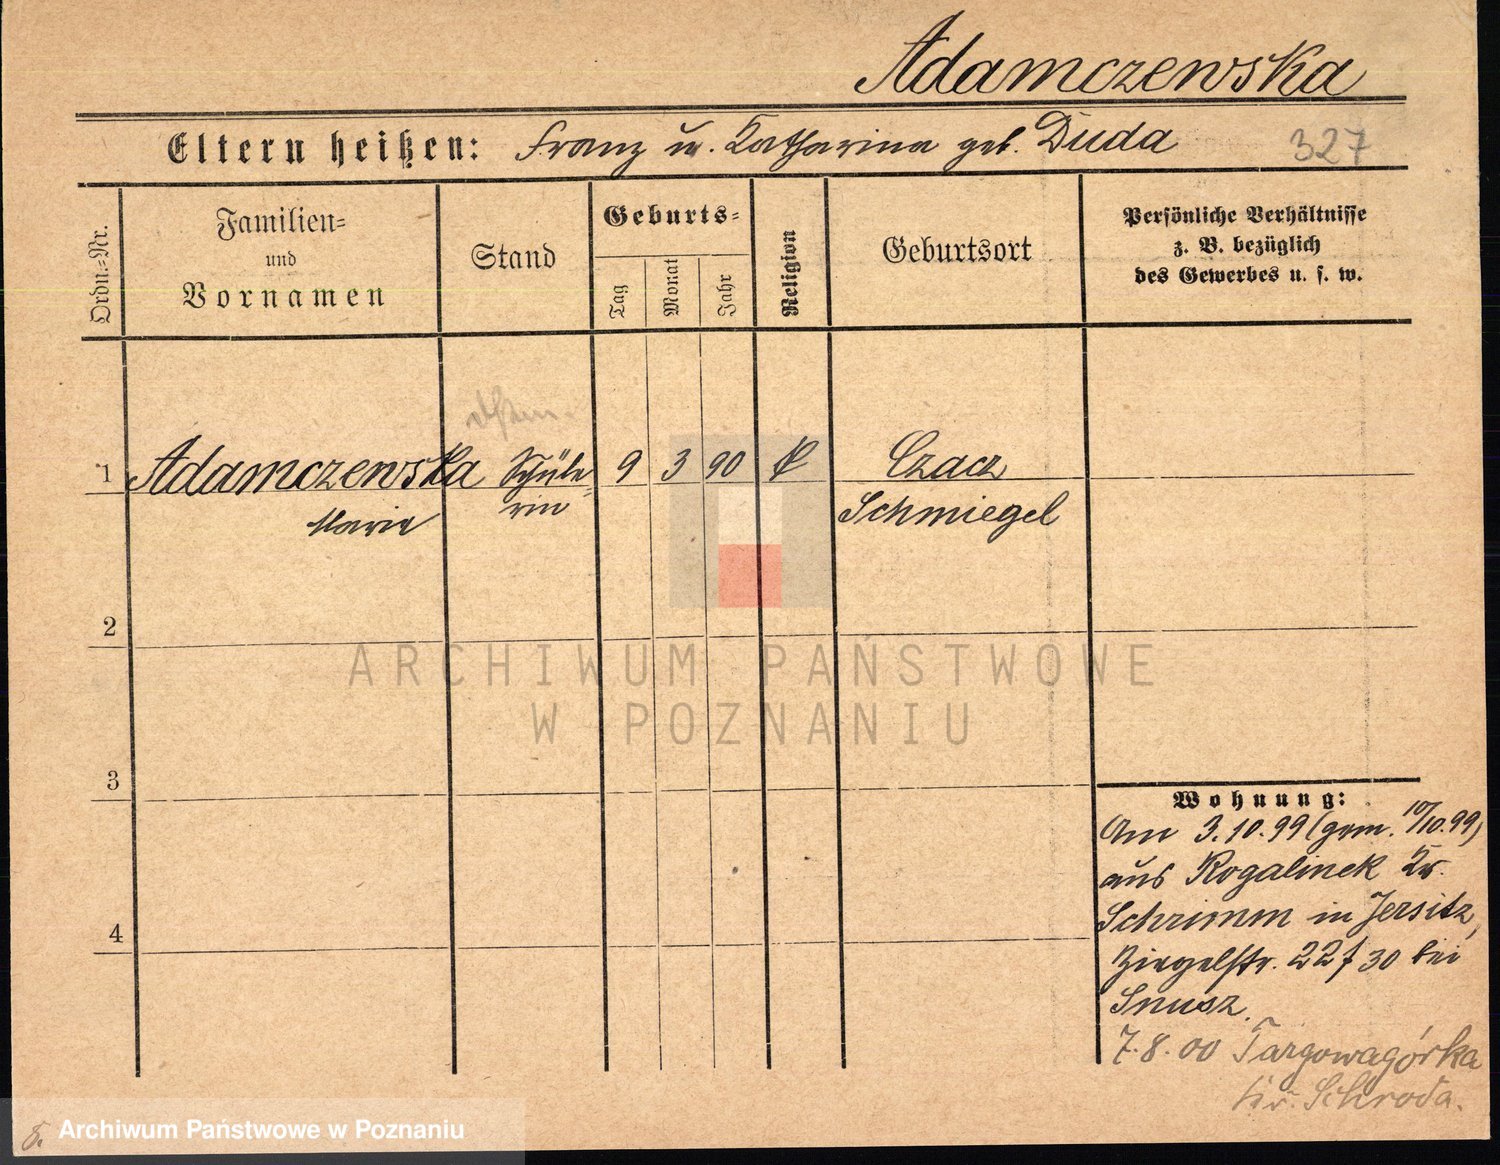 Adamczewska
Eltern heißen: Franz u. Katharina geb. Duda 327
Ordn.=Nr.
Familien=
und
Vornamen
Stand
Geburts=
Tag
Monat
Jahr
Religion
Geburtsort
Persönliche Verhältnisse
z. B. bezüglich
des Gewerbes u. s. w.
1 Adamczewska Schüle= 9 3 90 Czacz
Marie rin Schmiegel
2
3
4
Wohnung:
Am 3.10.99 (gem. 10/10.99)
aus Rogalinek Kr.
Schrimm in Jersitz,
Ziegelstr. 22 30 bei
Snusz.
7.8.00 Targowagórka
Kr. Schroda.
ARCHIWUM PAŃSTWOWE
W POZNANIU
Archiwum Państwowe w Poznaniu